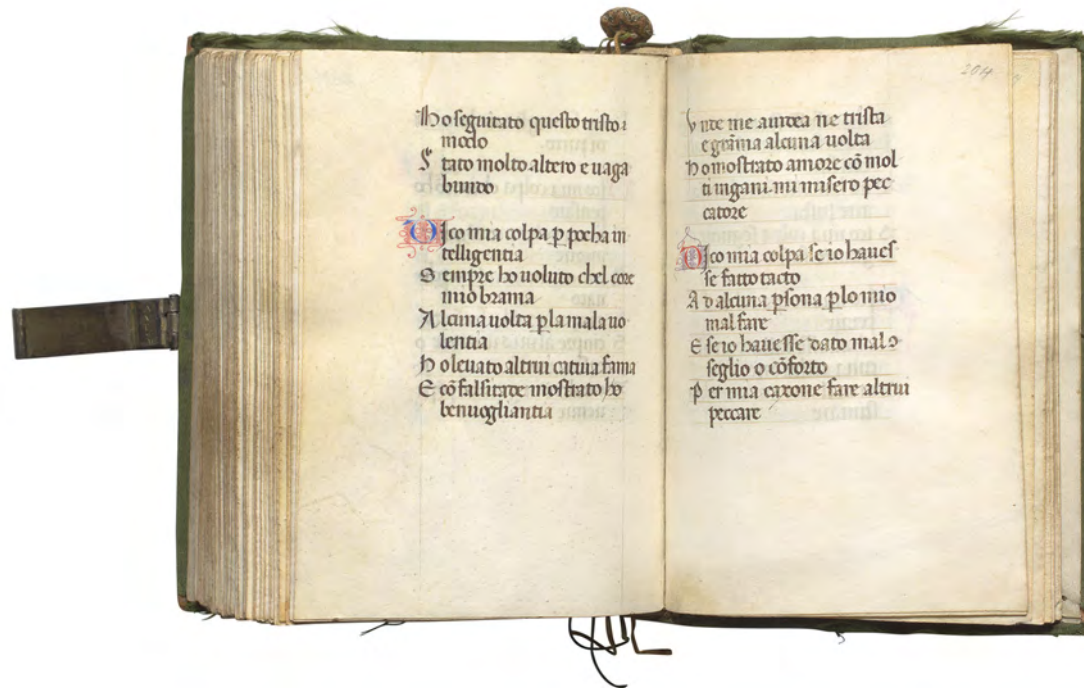 Ho seguitato questo tristo
modo
S tato molto altero e uaga
bundo
Dico mia colpa p̱ pocha in
telligentia
S empre ho uoluto chel core
mio brama
A lcuna uolta p̱ la mala uo
lentia
H o leuato altrui catiua fama
E cō falsitade mostrato ho
benuogliantia
204
e grāma alcuna uolta
H o mostrato amore cō mol
ti ingani mi misero pec
catore
Dico mia colpa se io haues
se fatto tacto
A d alcuna p̱sona p̱ lo mio
mal fare
E se io hauesse dato mal ꝯ
seglio o cōforto
P er mia caxone fare altrui
peccare